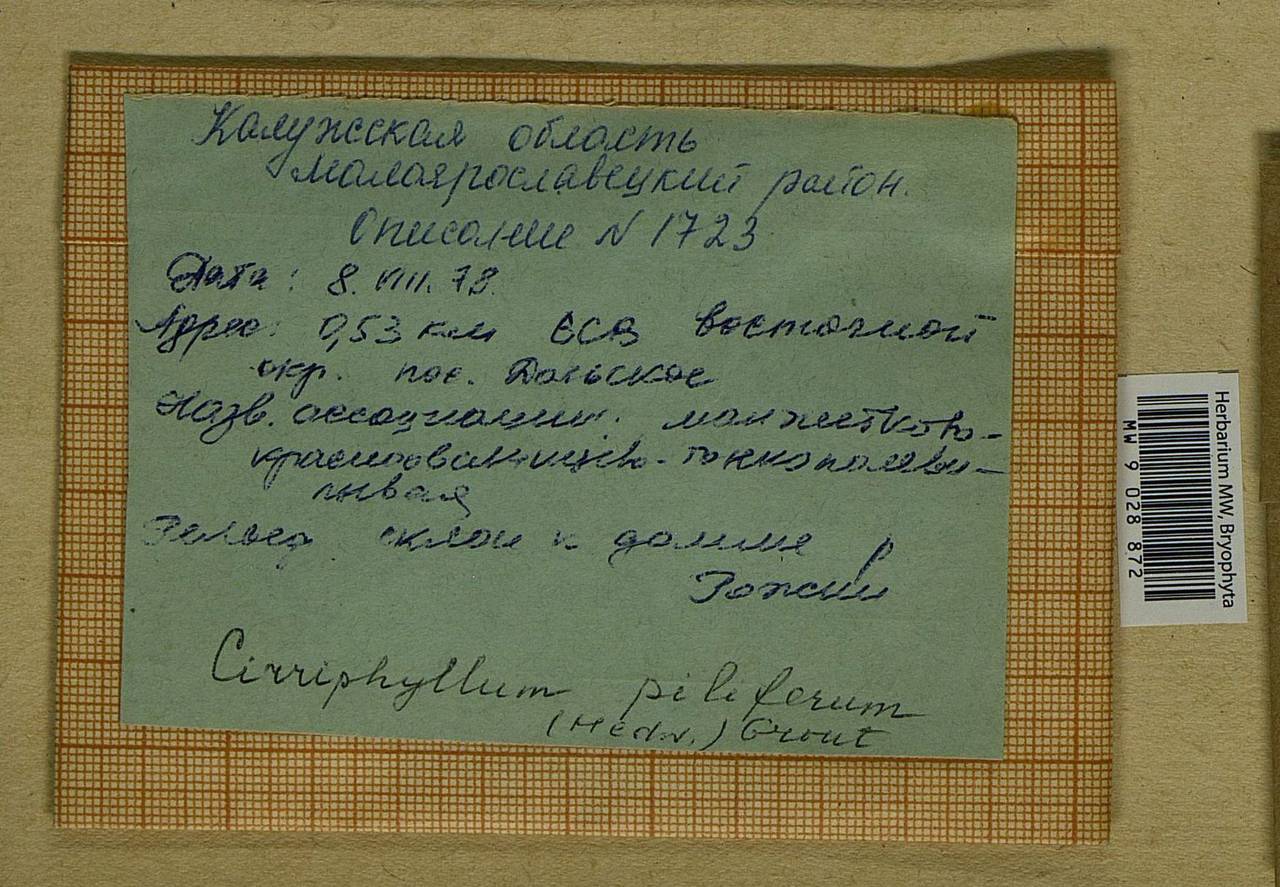 Калужская область
Малоярославецкий район.
Описание N 1723
Дата: 8. VIII. 78.
Адрес: 0,53 км ВСВ восточной
окр. пос. Дольское
Назв. ассоциации: манжетково-
красноовсяницево-тонкополеви-
цевая
Рельеф склон к долине р
Рожни
Cirriphyllum piliferum
(Hedw.) Grout
Herbarium MW, Bryophyta
MW 9 028 872